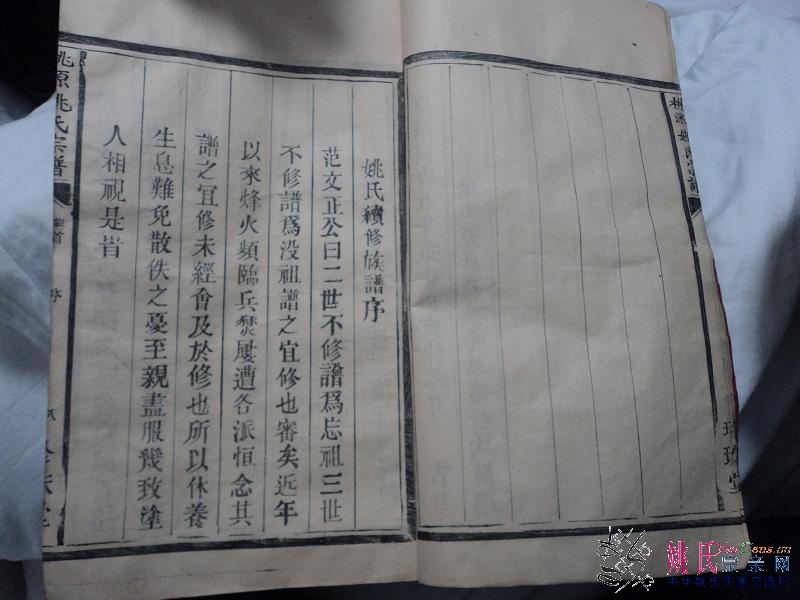 姚氏續修族譜序
范文正公曰二世不修譜爲忘祖三世
不修譜爲没祖譜之宜修也審矣近年
以來烽火頻臨兵燹屢遭各派恒念其
譜之宜修未經會及於修也所以休養
生息難免散佚之憂至親盡服幾致塗
人相視是昔
桃源姚氏宗譜
卷首
序
珍珠堂
姚氏宗亲网